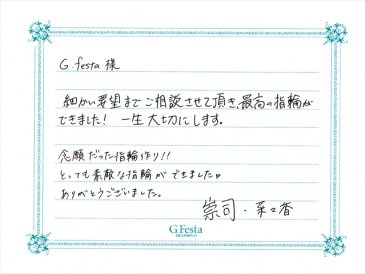 G festa 様
細かい要望までご相談させて頂き、最高の指輪が
できました! 一生大切にします。
念願だった指輪作り!!
とっても素敵な指輪ができました♡
ありがとうございました。
崇司・菜々香
G.Festa